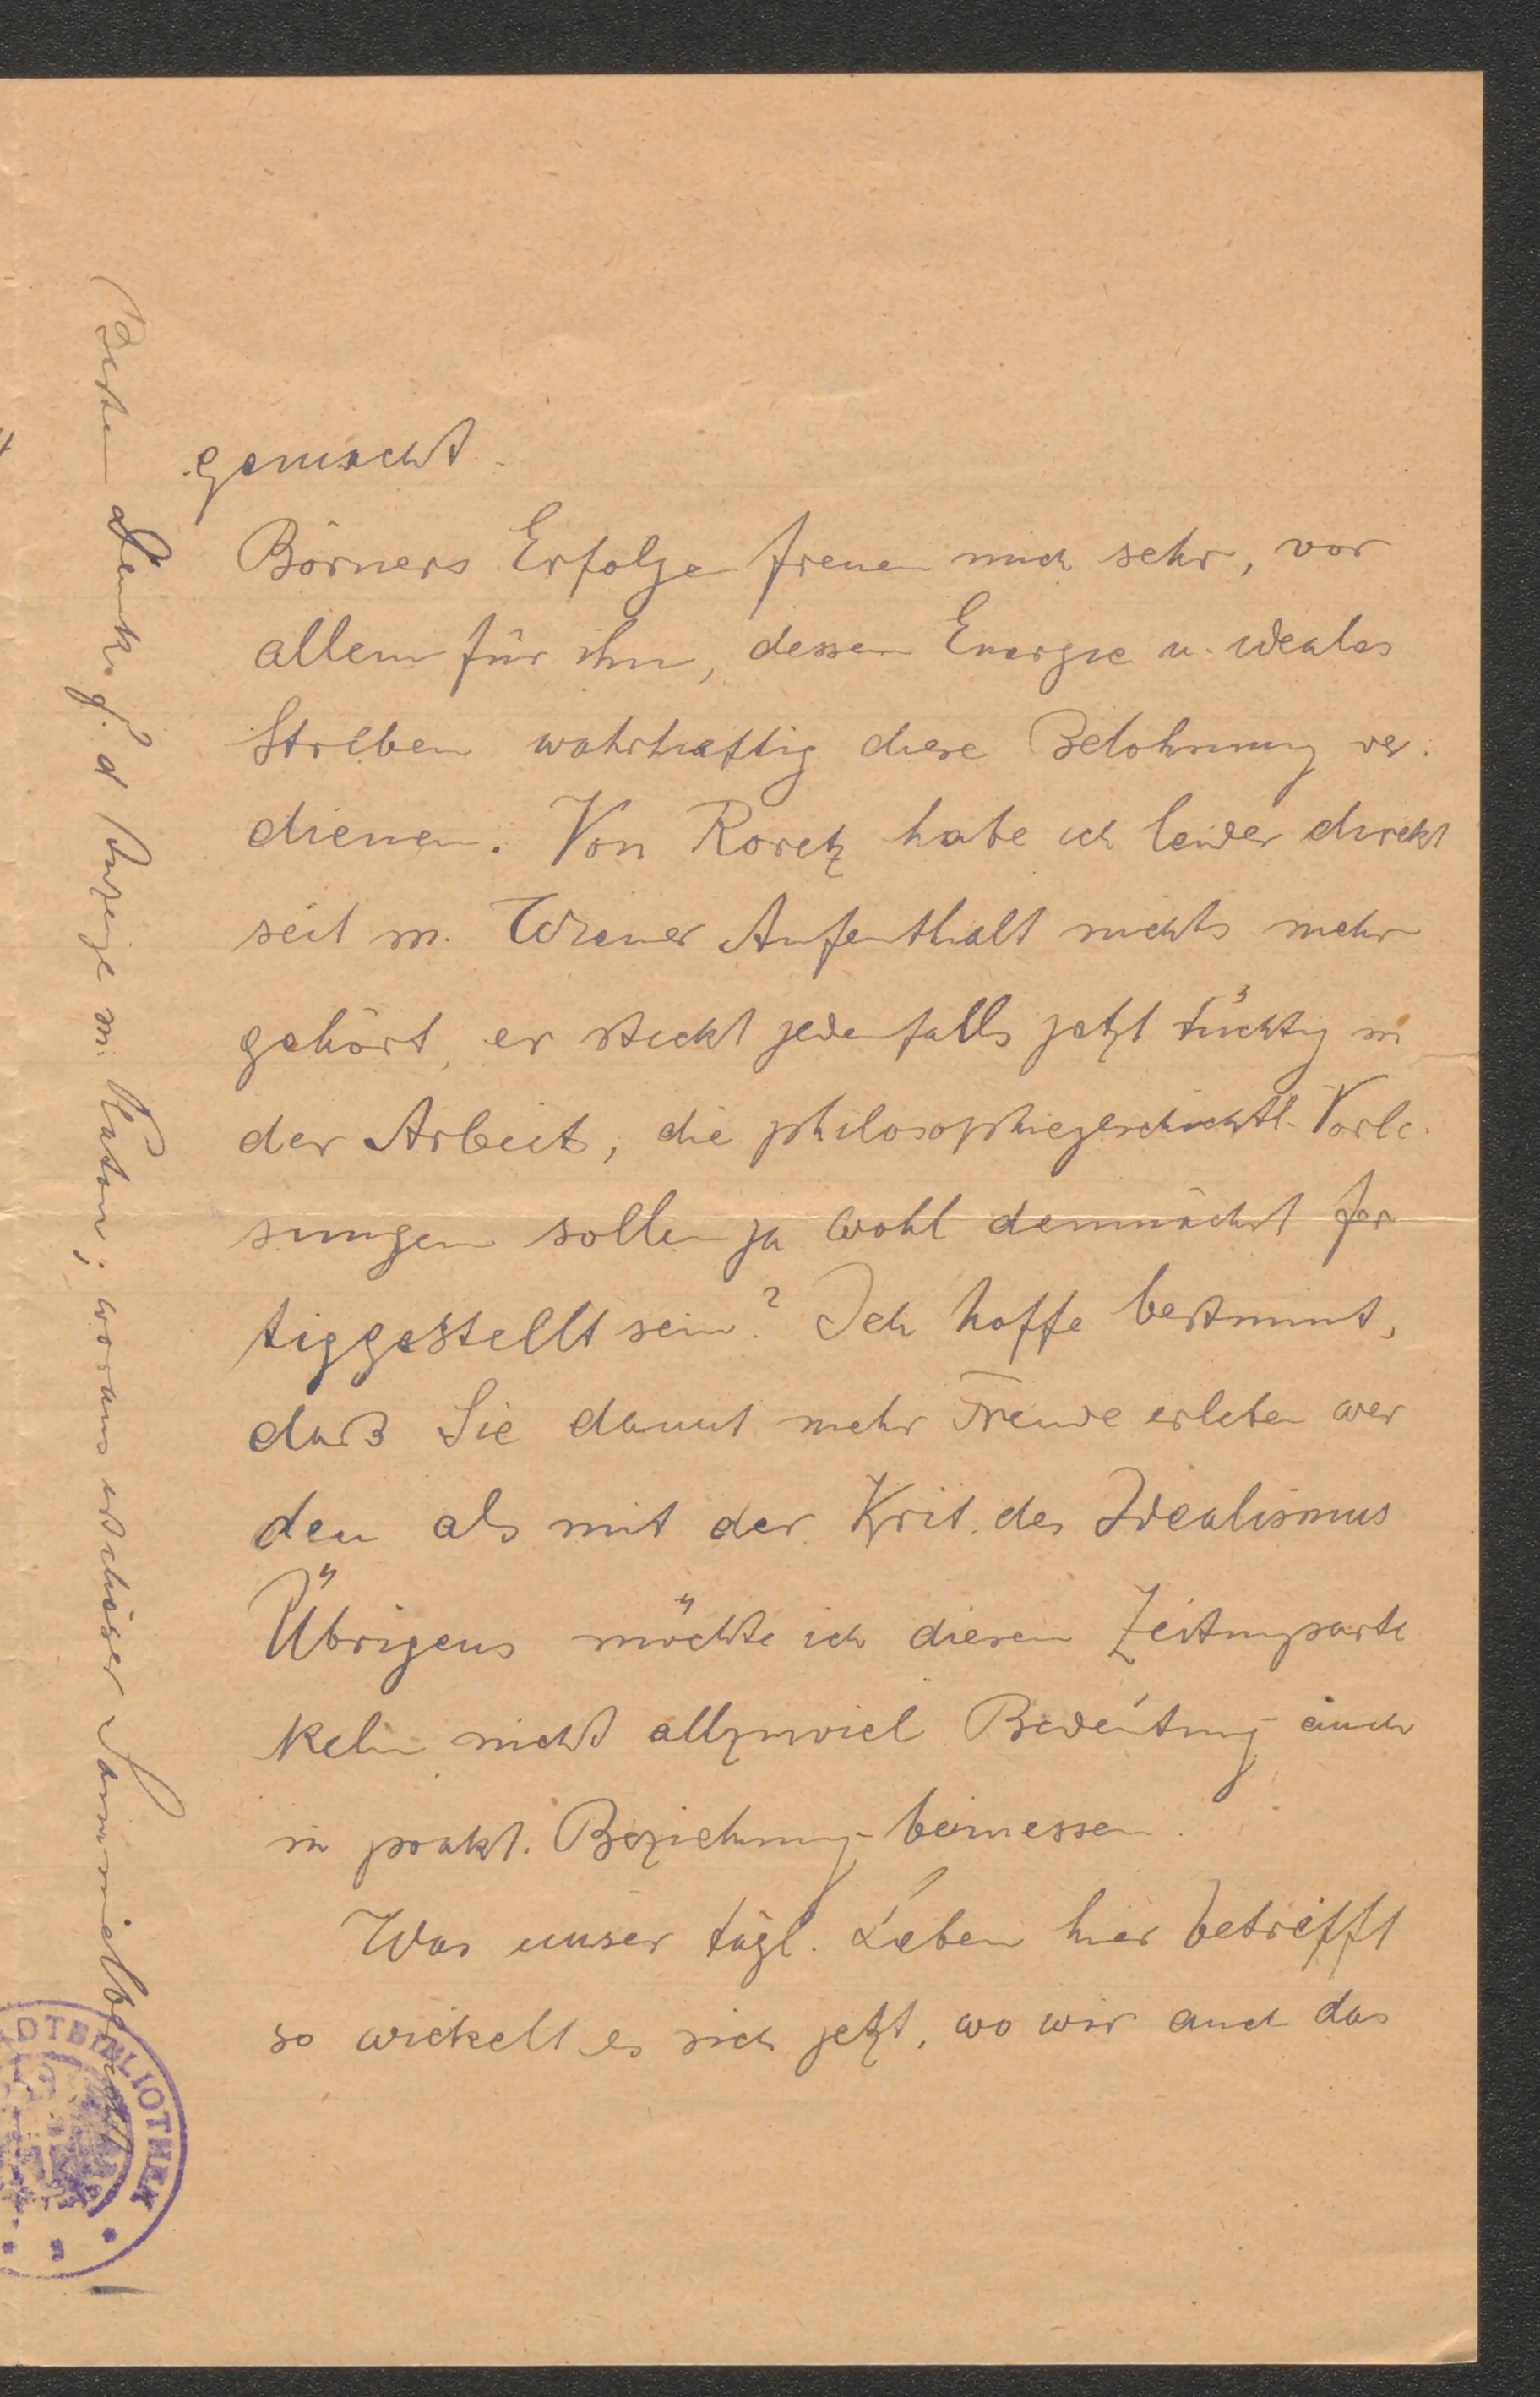 gemacht.
Börners Erfolge freuen mich sehr, vor
allem für ihn, dessen Energie u. ideales
Streben wahrhaftig diese Belohnung ver-
dienen. Von Roretz habe ich leider direkt
seit m. Wiener Aufenthalt nichts mehr
gehört, er steckt jedenfalls jetzt tüchtig in
der Arbeit, die philosophiegeschichtl. Vorle-
sungen sollen ja wohl demnächst fer
tiggestellt sein? Ich hoffe bestimmt,
daß Sie damit mehr Freude erleben wer
den als mit der Krit. des Idealismus
Übrigens möchte ich diesen Zeitungsarti
keln nicht allzuviel Bedeutung auch
in prakt. Beziehung beimessen.
Was unser tägl. Leben hier betrifft
so wickelt es sich jetzt, wo wir auch das
Besten Dank f. d. Anzeige m. Kator; woraus ist dieser Sammelbericht
STADTBIBLIOTHEK